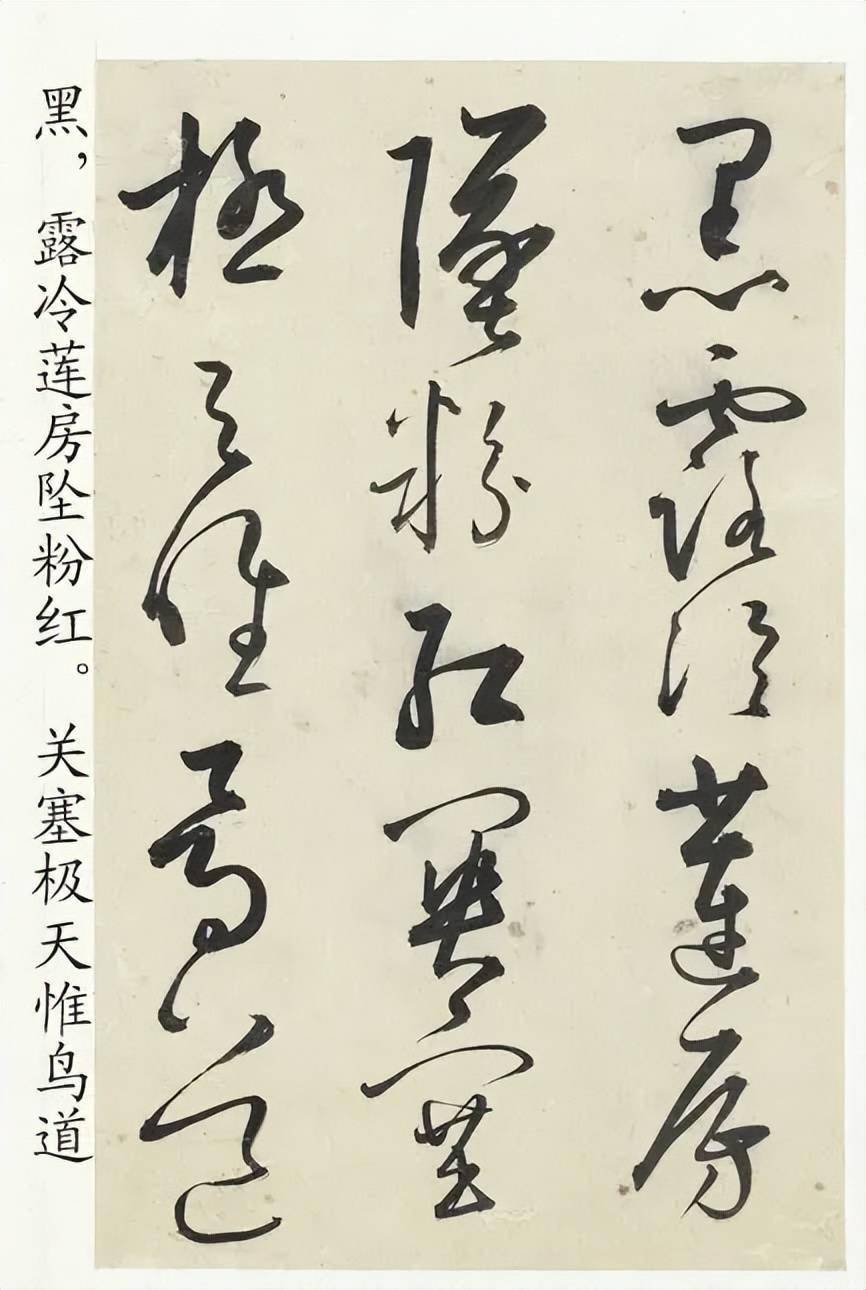 黑露冷蓮房
墜粉紅關塞
極天惟鳥道
黑，露冷莲房坠粉红。关塞极天惟鸟道